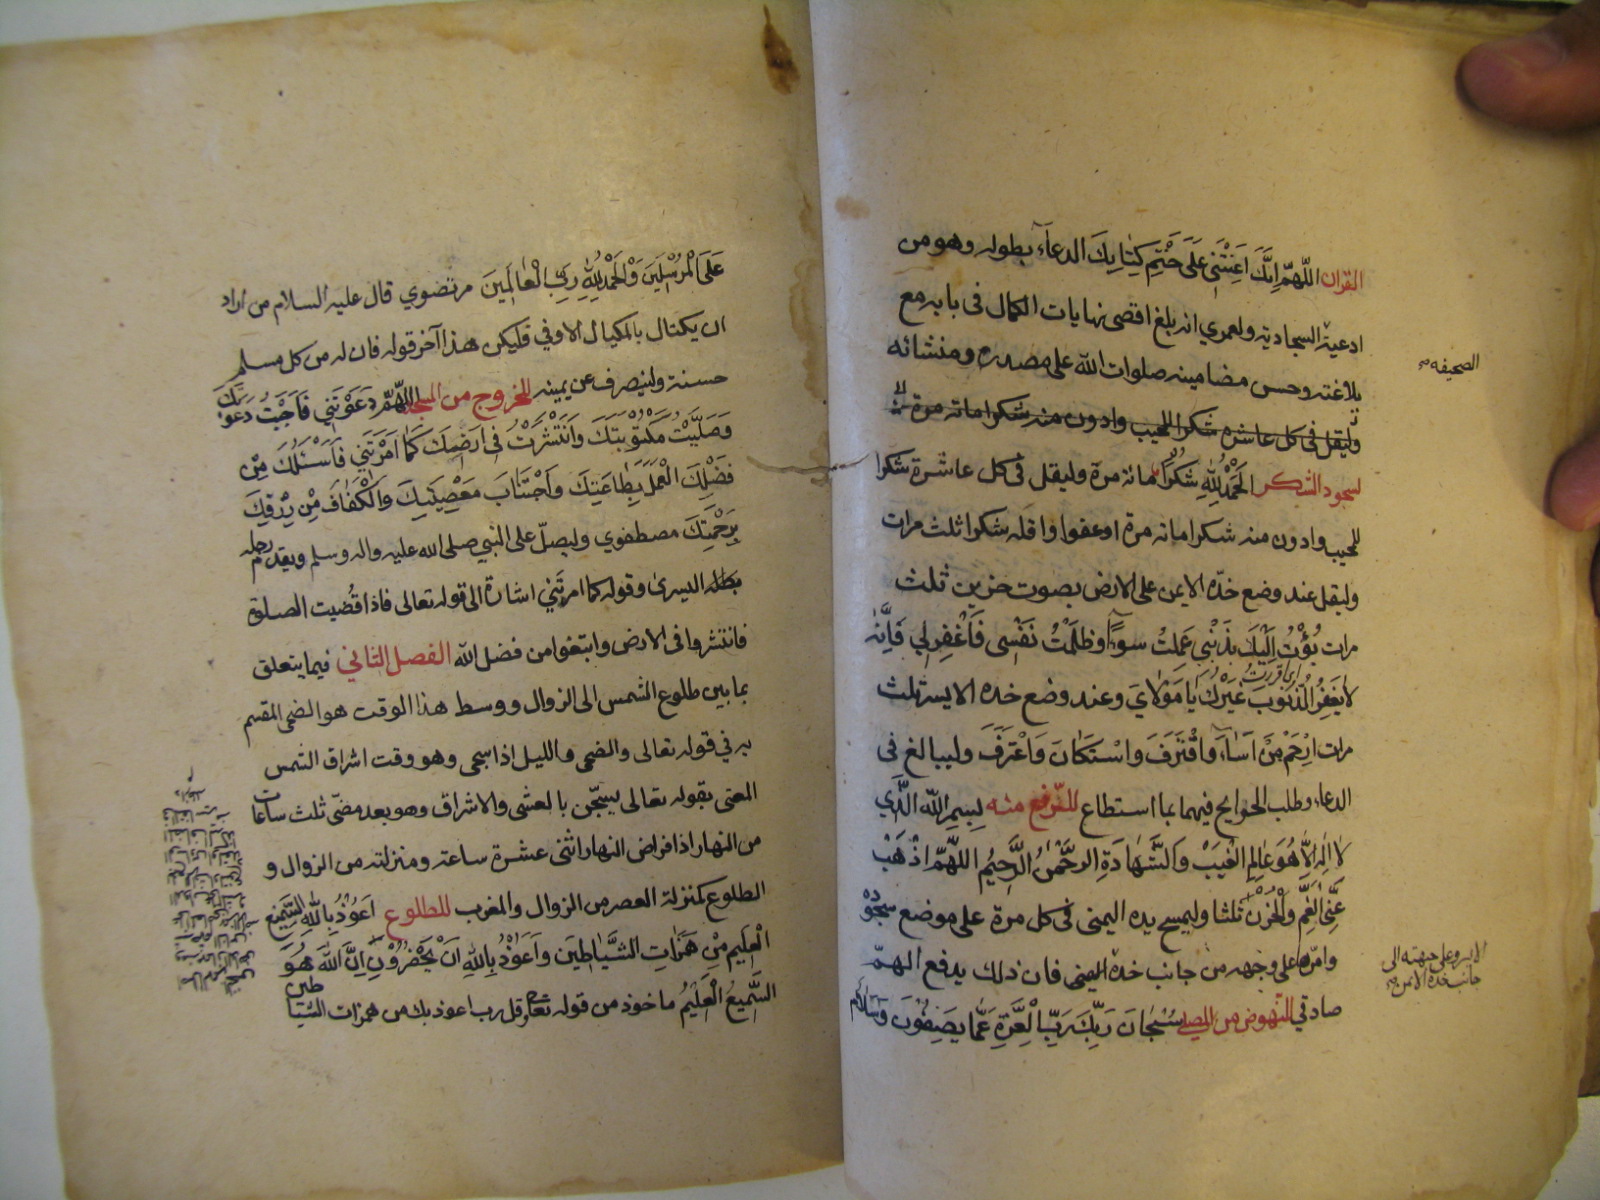 القران اللّهمّ اِنَّكَ اَعَنْتَنى عَلى خَتْمِ كِتابِكَ الدعاء بطوله وهو من
ادعية السجادية ولعمري انه بلغ اقصى نهايات الكمال فى بابه مع
بلاغته وحسن مضامينه صلوات الله على مصدره ومنشائه
وليقل فى كل عاشرة شكرا للمجيب وادون منه شكرا مائة مرة
لسجود الشكر اَلْحَمْدُ لِلّهِ شُكْرًا مائة مرة وليقل فى كل عاشرة شكرا
للمجيب وادون منه شكرا مائة مرة او عفوا واقله شكرا ثلث مرات
وليقل عند وضع خدّه الايمن على الارض بصوت حزين ثلث
مرات بُؤْتُ اِلَيْكَ بِذَنْبى عَمِلْتُ سوءًا وظَلَمْتُ نَفْسى فَاغْفِرلى فَاِنَّهُ
اى اقررت
لا يَغْفِرُ الذُّنُوبَ غَيْرُكَ يا مَوْلايَ وعند وضع خده الايسر ثلث
مرات اِرْحَمْ مَنْ اَساءَ وَاقْتَرَفَ وَاسْتَكانَ وَاعْتَرَفَ وليبالغ فى
الدعاء وطلب الحوايج فيهما بما استطاع للرّفع منه بِسمِ اللّهِ الَّذي
لا اِلهَ اِلاّ هُوَ عالِمِ الْغَيْبِ وَالشَّهادَةِ الرحْمنُ الرَّحيمُ اللّهُمّ اذْهَبْ
عَنّى الْغَمّ وَالْحُزْنَ ثلثا وليمسح يده اليمنى فى كل مرة على موضع سجوده
وامرّها على وجهه من جانب خدّه اليمنى فان ذلك يدفع الهمّ
صادقي للنهوض من المصلى سُبْحانَ رَبِّكَ رَبِّ الْعِزَّةِ عَمّا يَصِفُونَ وَسَلامٌ
الصحيفه صح
الايسر وعلى جبهته الى
جانب خده الايمن صح
عَلَى الْمُرْسَلينَ وَالْحَمْدُ لِلّهِ رَبِّ الْعالَمينَ مرتضوي قال عليه السلام من اراد
ان يكتال بالمكيال الاوفى فليكن هذا آخر قوله فان له من كل مسلم
حسنة ولينصرف عن يمينه للخروج من المسجد اللّهُمّ دَعَوْتَنى فَاَجَبْتُ دَعْوَتَكَ
وَصَلَّيْتُ مَكْتُوبَتَكَ وَانْتَشَرْتُ فى اَرْضِكَ كَما اَمَرْتَني فَاَسْئَلُكَ مِنْ
فَضْلِكَ الْعَمَلَ بِطاعَتِكَ وَاجْتِنابَ مَعْصِيَتِكَ وَالْكَفافَ مِنْ رِزْقِكَ
بِرَحْمَتِكَ مصطفوي وليصلّ على النبي صلى الله عليه واله وسلم ويقدّم رجله
اليسرى وقوله كما امرتني اشارة الى قوله تعالى فاذا قُضيت الصلوة
فانتشروا فى الارض وابتغوا من فضل الله الفصل الثاني فيما يتعلق
بما بين طلوع الشمس الى الزوال ووسط هذا الوقت هو الضحى المقسم
به في قوله تعالى والضحى والليل اذا سجى وهو وقت اشراق الشمس
المعنى بقوله تعالى يسبّحن بالعشى والاشراق وهو بعد مضىّ ثلث ساعات
من النهار اذا فراض النهار اثنى عشرة ساعة ومنزلته من الزوال و
الطلوع كمنزلة العصر من الزوال والمغرب للطلوع اَعُوذُ بِاللّهِ السَّميعِ
الْعَليمِ مِنْ هَمَزاتِ الشَّياطينِ وَاَعُوذُ بِاللّهِ اَنْ يَحْضُرُونِ اِنَّ اللّهَ هُوَ
السَّميعُ الْعَليمُ ماخوذ من قوله تعالى قل رب اعوذ بك من همزات الشياطين